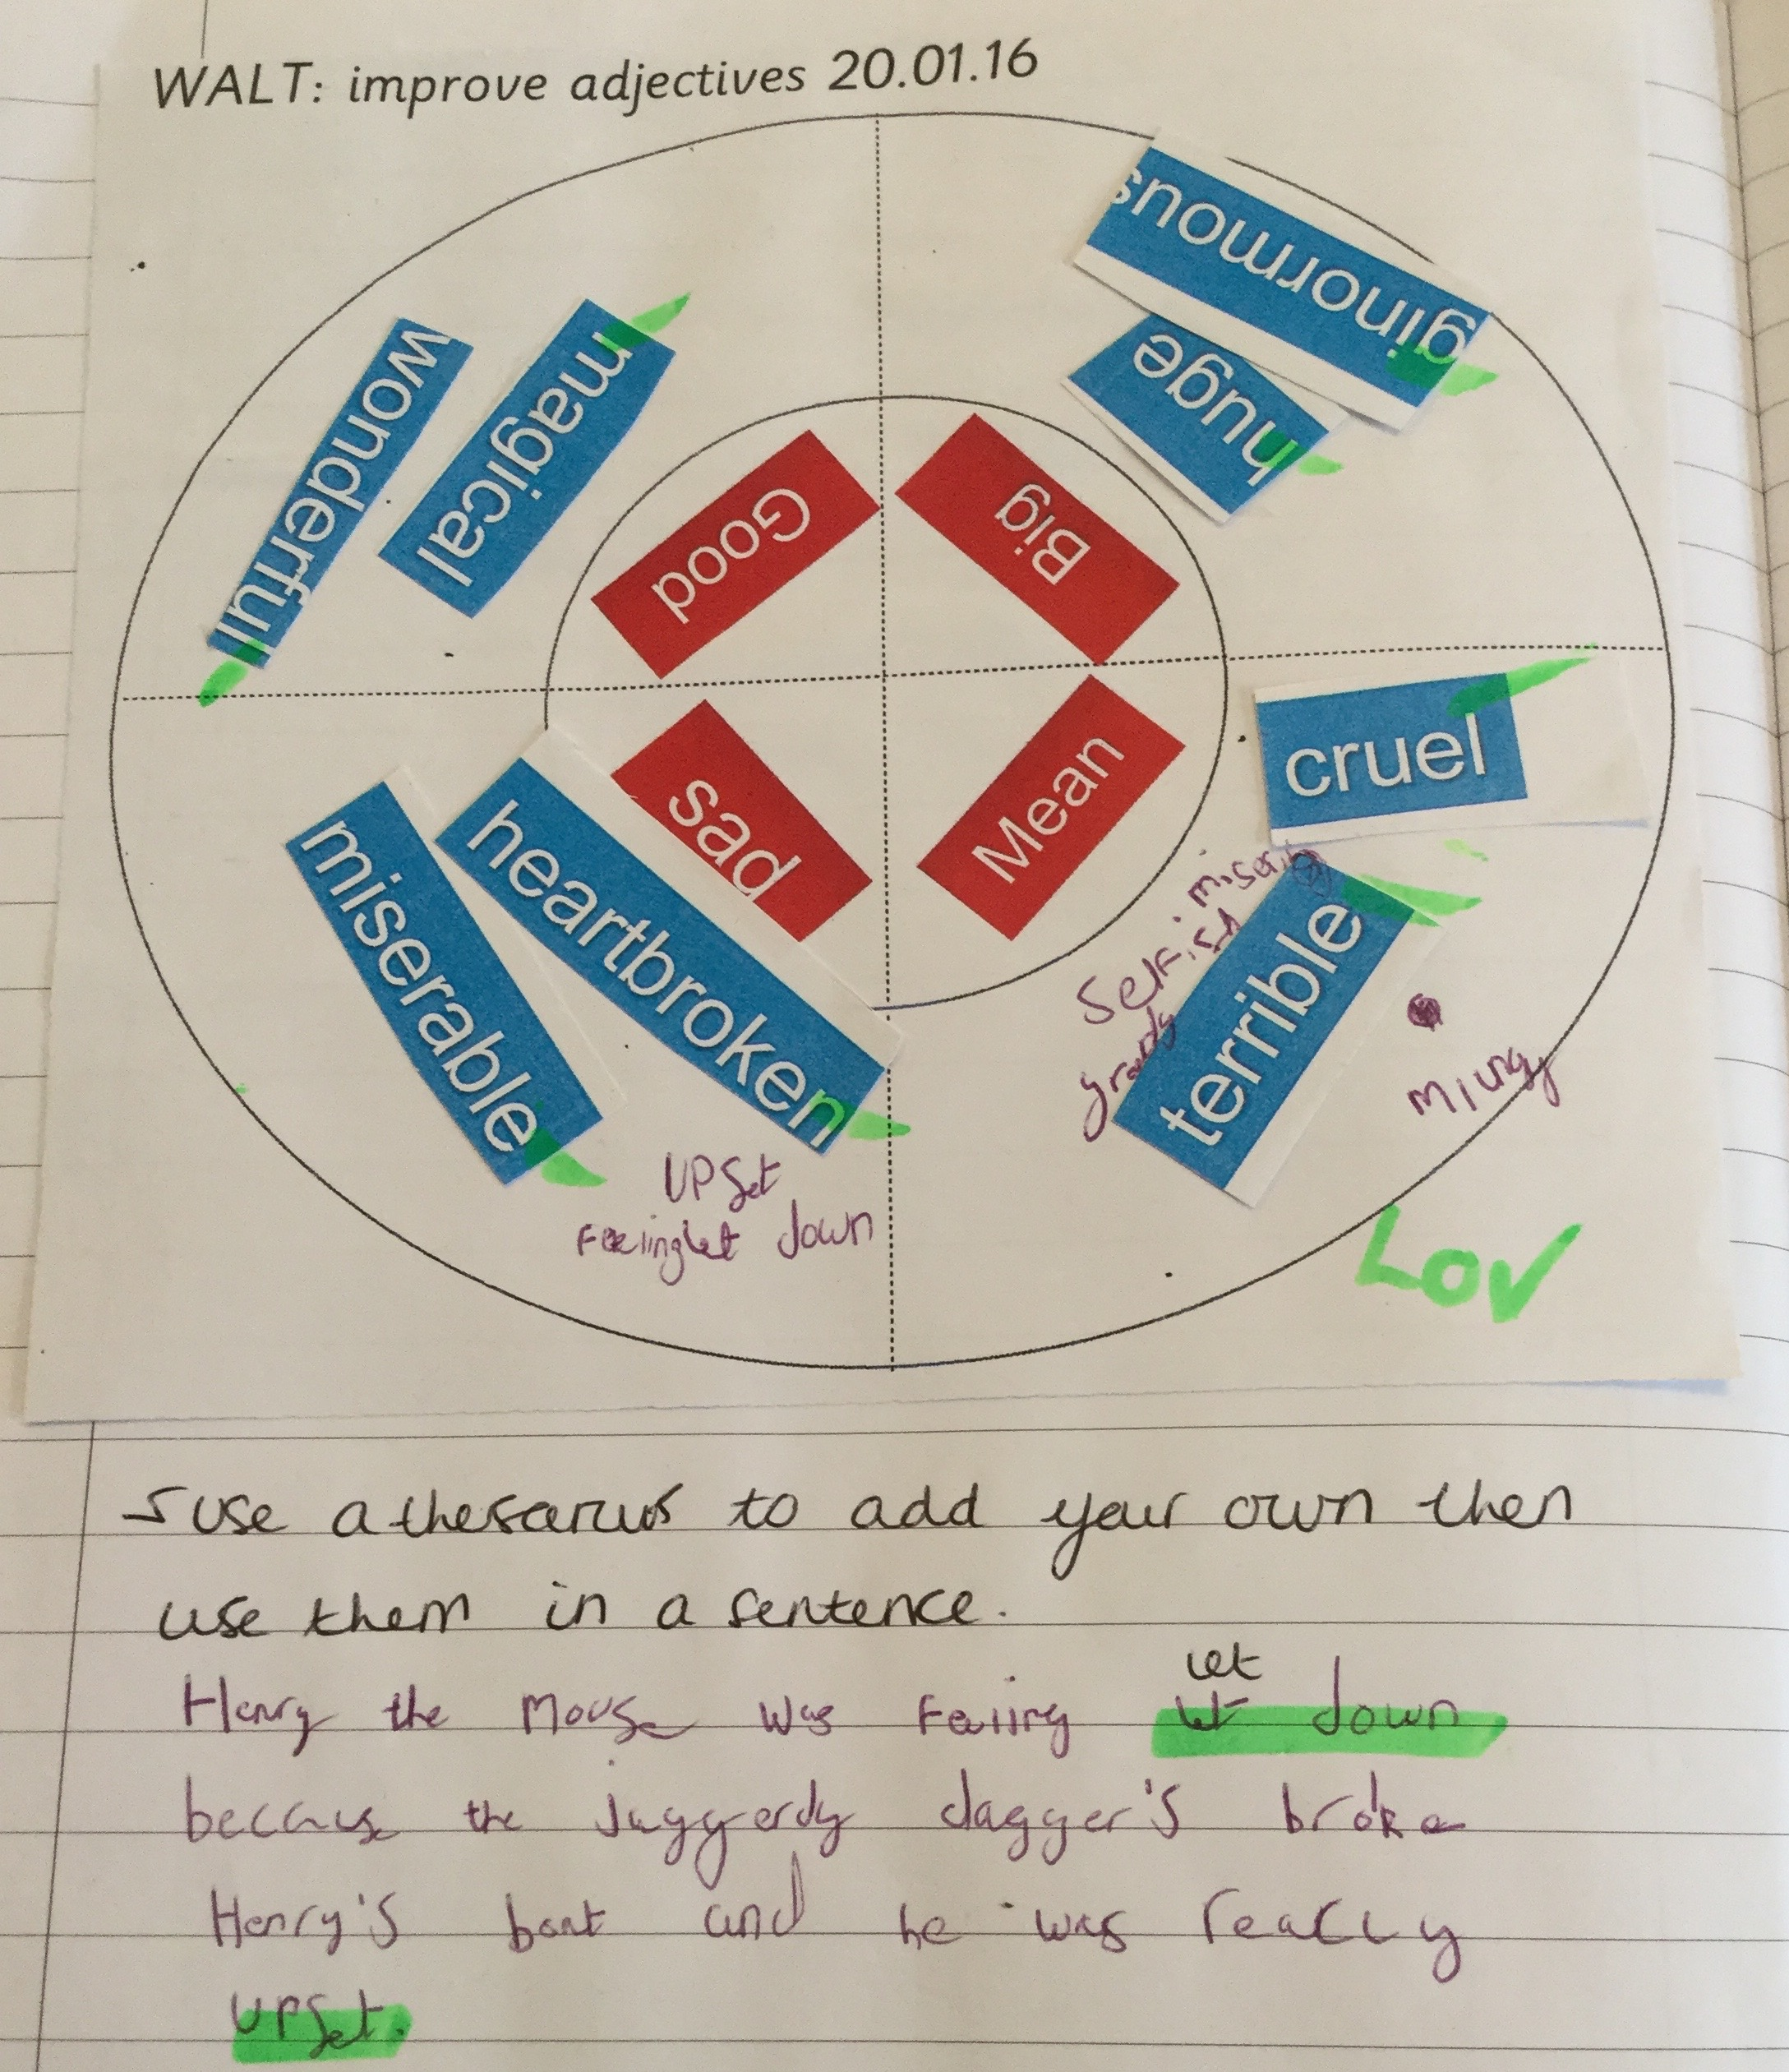 WALT: improve adjectives 20.01.16
ginormous
huge
wonderful
magical
Good
Big
cruel
sad
Mean
heartbroken
miserable
terrible
Selfish
mingy
UPSet
down
LOV
use a thesarus to add your own then
use them in a sentence.
let
Henry the Mouse was Feiing let down
because the juggerdy dagger's broke
Henry's boat and he was really
UPSet.